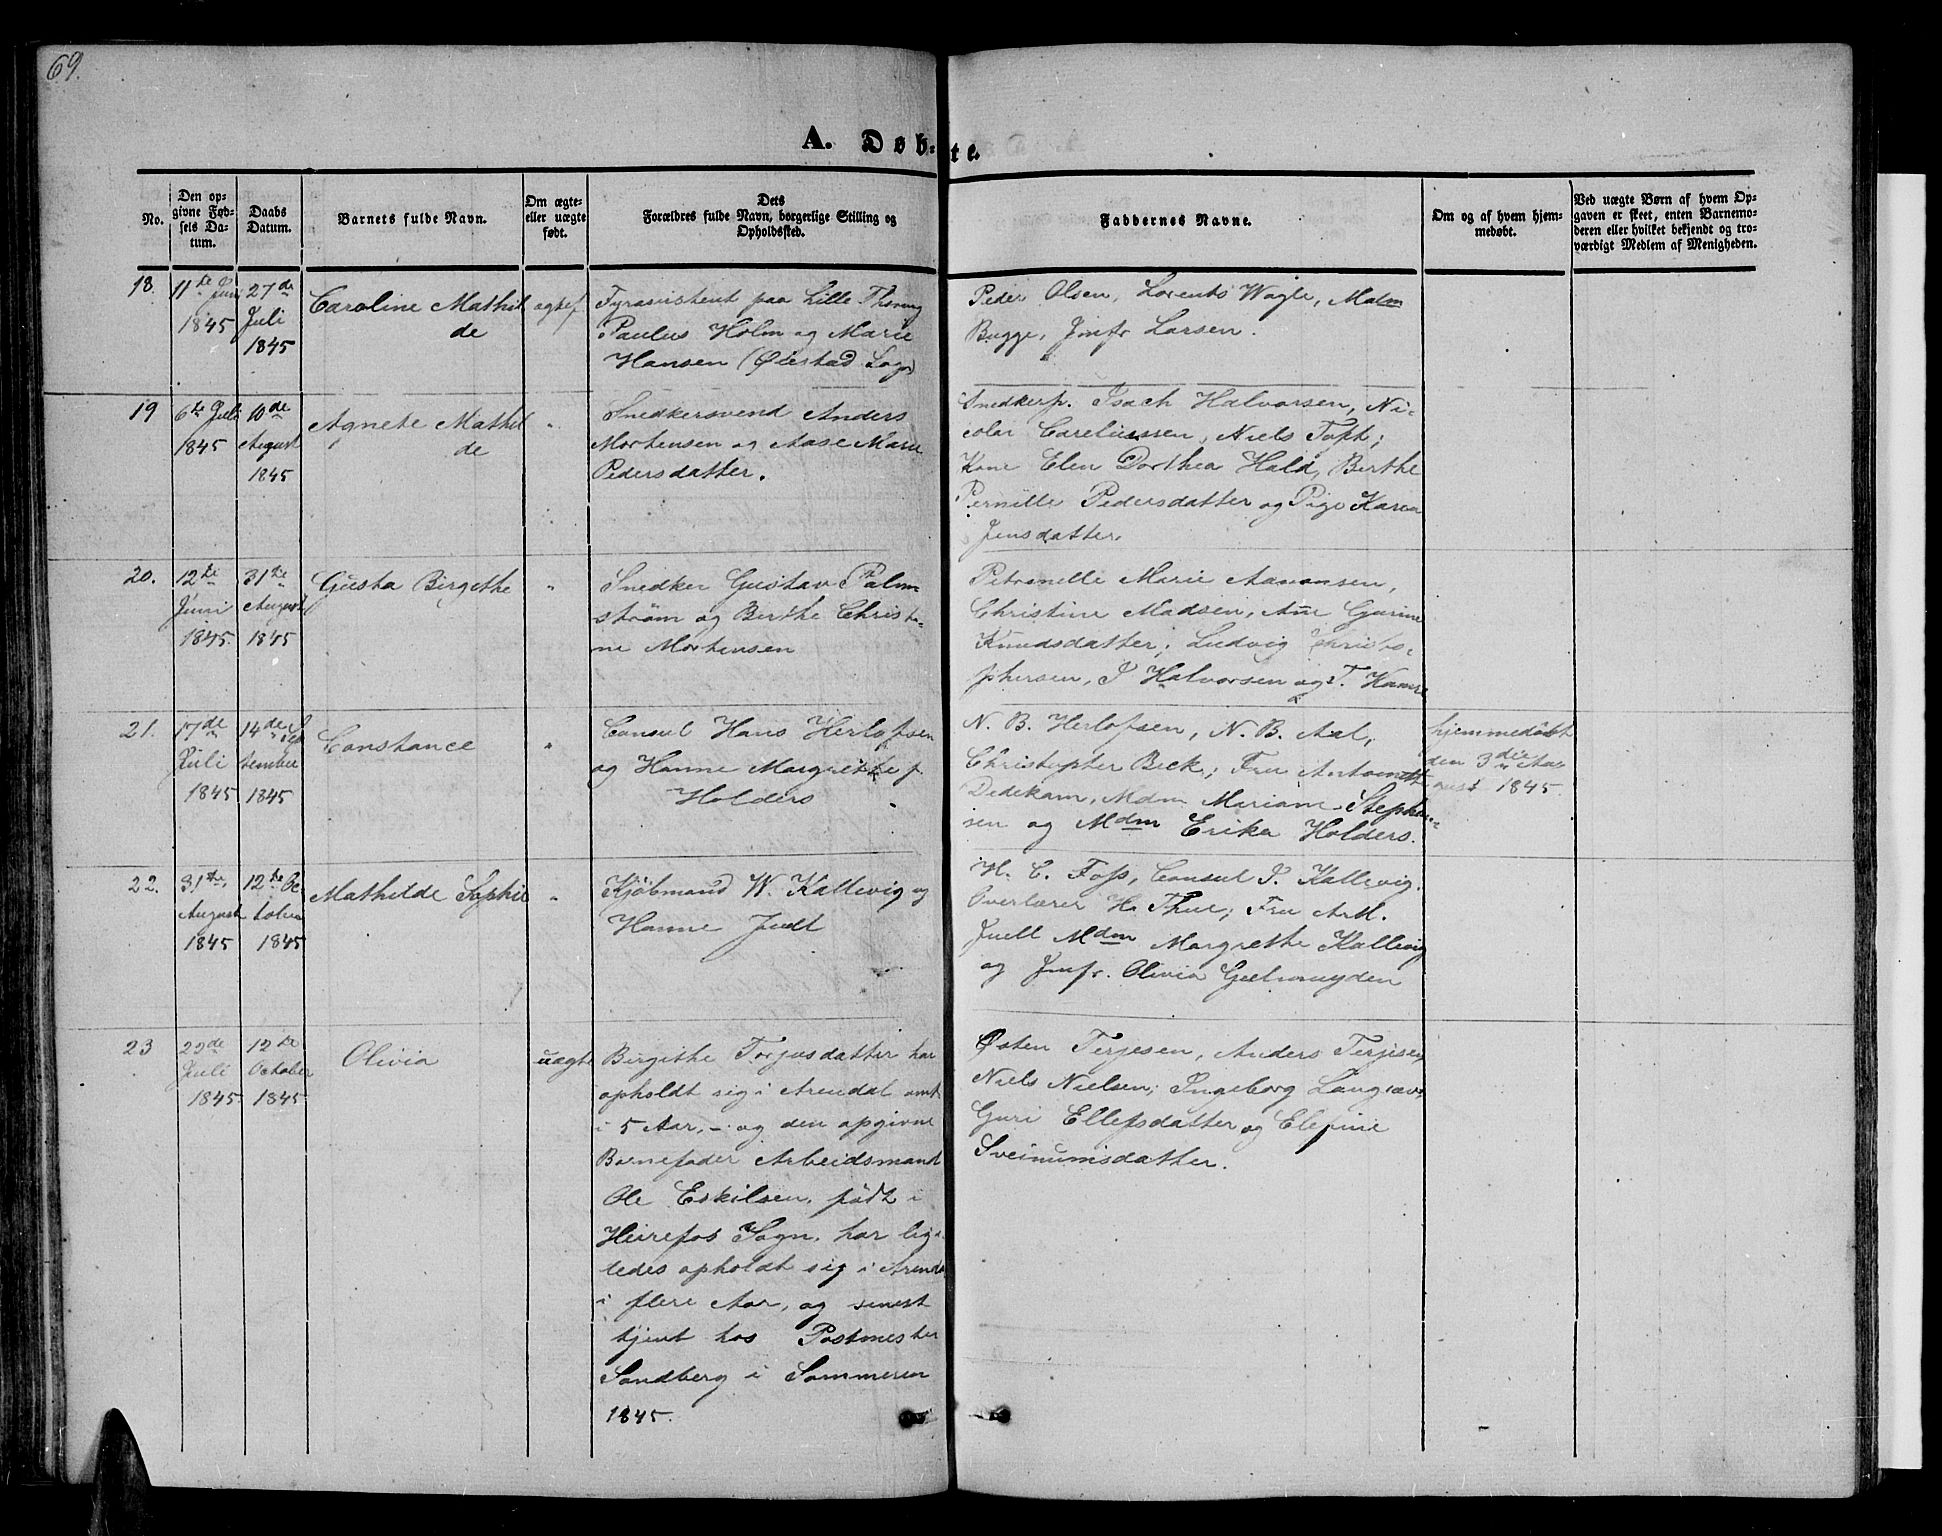 69.
A. Døb-te.
No.
Den op-
givne Fød-
sels Da-
tum.
Daabs
Datum.
Barnets fulde Navn.
Om ægte-
eller uægte
født.
Dets
Forældres fulde Navn, borgerlige Stilling og
Opholdssted.
Faddernes Navne.
Om og af hvem hjem-
medøbt.
Ved uægte Børn af hvem Op-
gaven er skeet, enten Barnemo-
deren eller hvilket bekjendt og tro-
værdigt Medlem af Menigheden.
18.
11te Juni
1845
27de
Juli
1845
Caroline Mathil
de
ægtef
Fyrassistent paa Lille Thorung
Paulus Holm og Marie
Hansen (Øiestad Sogn
Peder Olsen, Lorents Wagle, Madm
Bugge, Jmfr Larsen.
19
6te Juli
1845
10de
August
1845
Agnete Mathil
de
"
Snedkersvend Anders
Mortensen og Aase Marie
Pedersdatter.
Snedkers. Isach Halvorsen, Ni-
colai Careliussen, Niels Toft;
Kone Elen Dorthea Hald, Berthe
Pernille Pedersdatter og Pige Karen
Jensdatter.
20.
12te
Juni
1845.
31te
August
1845
Gusta Birgethe
"
Snedker Gustav Palm
strøm og Berthe Christi-
ne Mortensen
Petronelle Marie Aanonsen,
Christine Madsen, Ane Gurine
Knudsdatter; Ludvig Christo-
phersen, I Halvorsen og T. Kamre
21.
17de
Juli
1845
14de Sep
tember
1845
Constance
"
Consul Hans Herlofsen
og Hanne Margrethe f.
Holders
N. B. Herlofsen, N. B. Aal,
Christopher Beck; Fru Antonette
Dedekam, Mdm Mariane Stephan-
sen og Mdm Erika Holders.
hjemmedøbt
den 3die Au
gust 1845.
22.
31te
August
1845
12te Oc
tober
1845
Mathilde Sophie
"
Kjøbmand W. Kallevig og
Hanne Juell
H. C. Foss, Consul P. Kallevig.
Overlærer H. Thue; Fru A.M.
Juell Mdm Margrethe Kallevig
og Jmfr. Olivia Geelmuyden
23
29de
Juli
1845.
12te
October
1845
Olivia
uægte
Birgithe Torjusdatter har
opholdt sig i Arendal omt.
i 5 Aar, - og den opgivne
Barnefader Arbeidsmand
Ole Eskilsen, født i
Heirefos Sogn, har lige-
ledes opholdt sig i Arendal
i flere Aar, og senest
tjent hos Postmester
Sandberg i Sommeren
1845.
Østen Terjesen, Anders Terjesen,
Niels Nielsen; Ingeborg Langsæv,
Guri Ellefsdatter og Elefine
Sveinumsdatter.